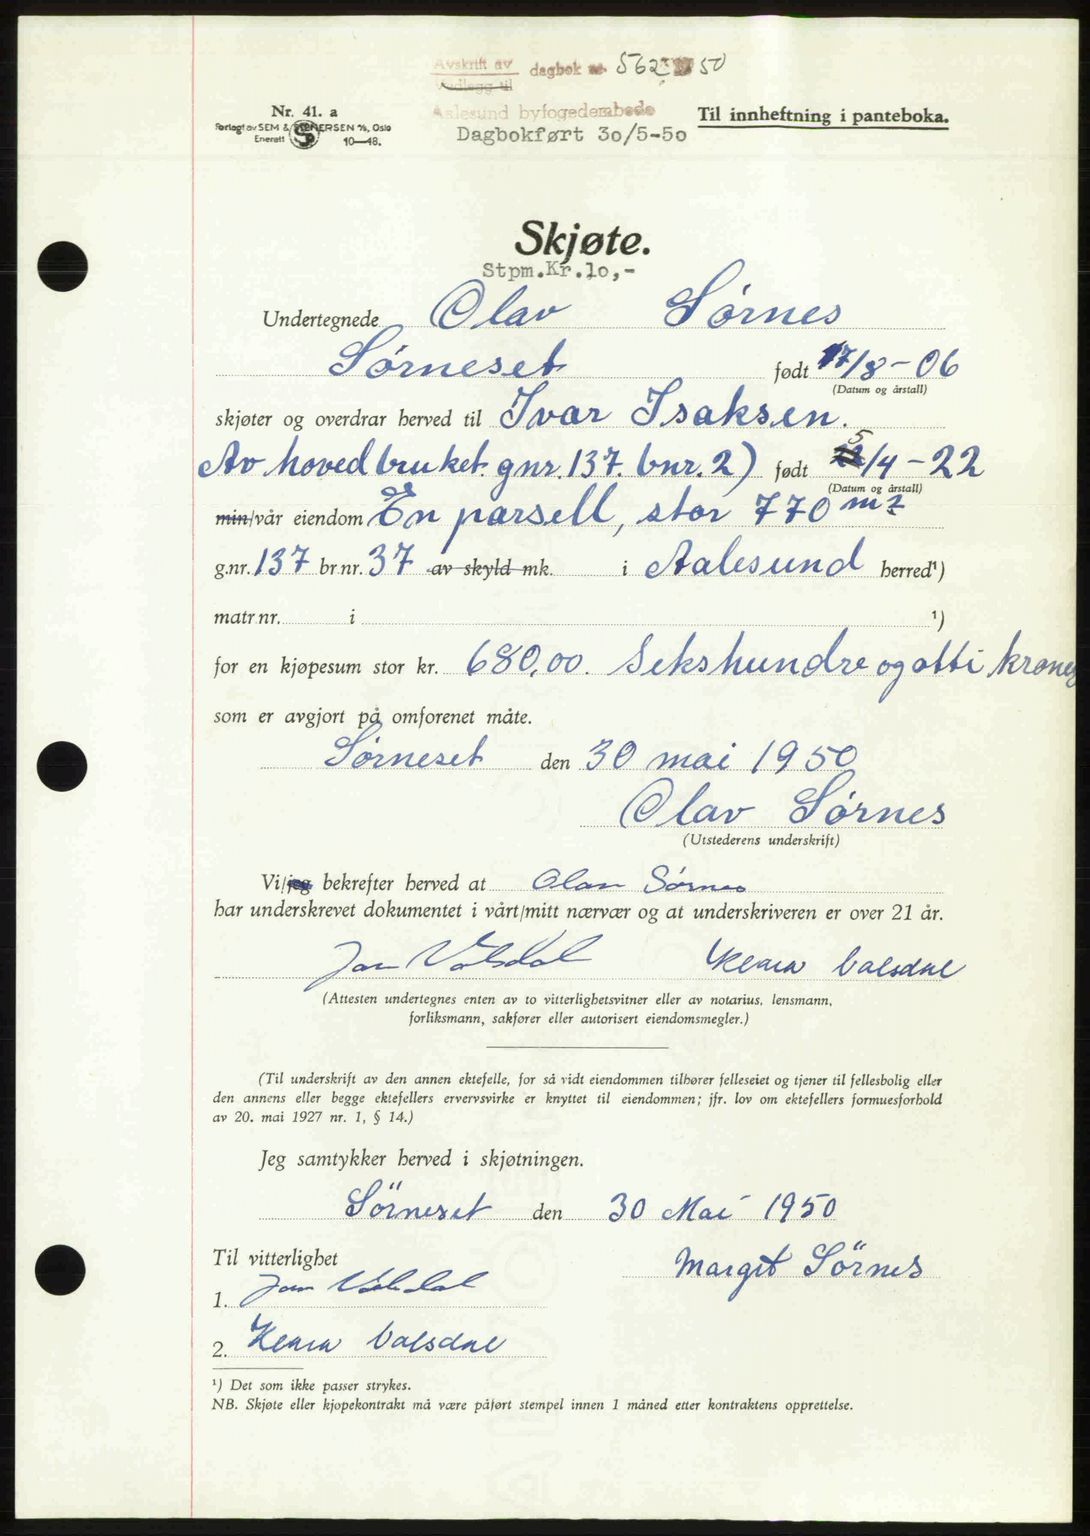 Avskrift av
Vedlegg til
dagbok nr. 562 50
Aalesund byfogedembede
Dagbokført 30/5-50
Nr. 41. a
Forlagt av SEM & STENERSEN A/S, Oslo
Enerett 10—48.
Til innheftning i panteboka.
Skjøte.
Stpm.Kr.10,-
Undertegnede Olav Sørnes
Sørneset født 17/8-06
(Datum og årstall)
skjøter og overdrar herved til Ivar Isaksen.
Av hovedbruket gnr. 137. bnr. 2) født 5/4-22
(Datum og årstall)
min/vår eiendom En parsell, stor 770 m2
g.nr. 137 br.nr. 37 av skyld mk. i Aalesund herred¹)
matr.nr. i ¹)
for en kjøpesum stor kr. 680,00. Sekshundre og otti kroner
som er avgjort på omforenet måte.
Sørneset den 30 mai 1950
Olav Sørnes
(Utstederens underskrift)
Vi/jeg bekrefter herved at Olav Sørnes
har underskrevet dokumentet i vårt/mitt nærvær og at underskriveren er over 21 år.
Jan Valsdal Klara Valsdal
(Attesten undertegnes enten av to vitterlighetsvitner eller av notarius, lensmann,
forliksmann, sakfører eller autorisert eiendomsmegler.)
(Til underskrift av den annen ektefelle, for så vidt eiendommen tilhører felleseiet og tjener til fellesbolig eller
den annens eller begge ektefellers ervervsvirke er knyttet til eiendommen; jfr. lov om ektefellers formuesforhold
av 20. mai 1927 nr. 1, § 14.)
Jeg samtykker herved i skjøtningen.
Sörneset den 30 Mai 1950
Til vitterlighet
Margit Sörnes
1. Jan Valsdal
2. Klara Valsdal
¹) Det som ikke passer strykes.
NB. Skjøte eller kjøpekontrakt må være påført stempel innen 1 måned etter kontraktens opprettelse.